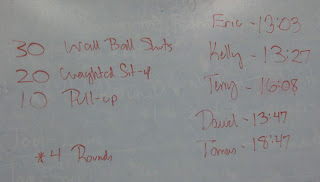 30 Wall Ball Shots
20 Weighted Sit-up
10 Pull-up
*4 Rounds
Eric - 13:03
Kelly - 13:27
Terry - 16:08
David - 13:47
Tomas - 18:47